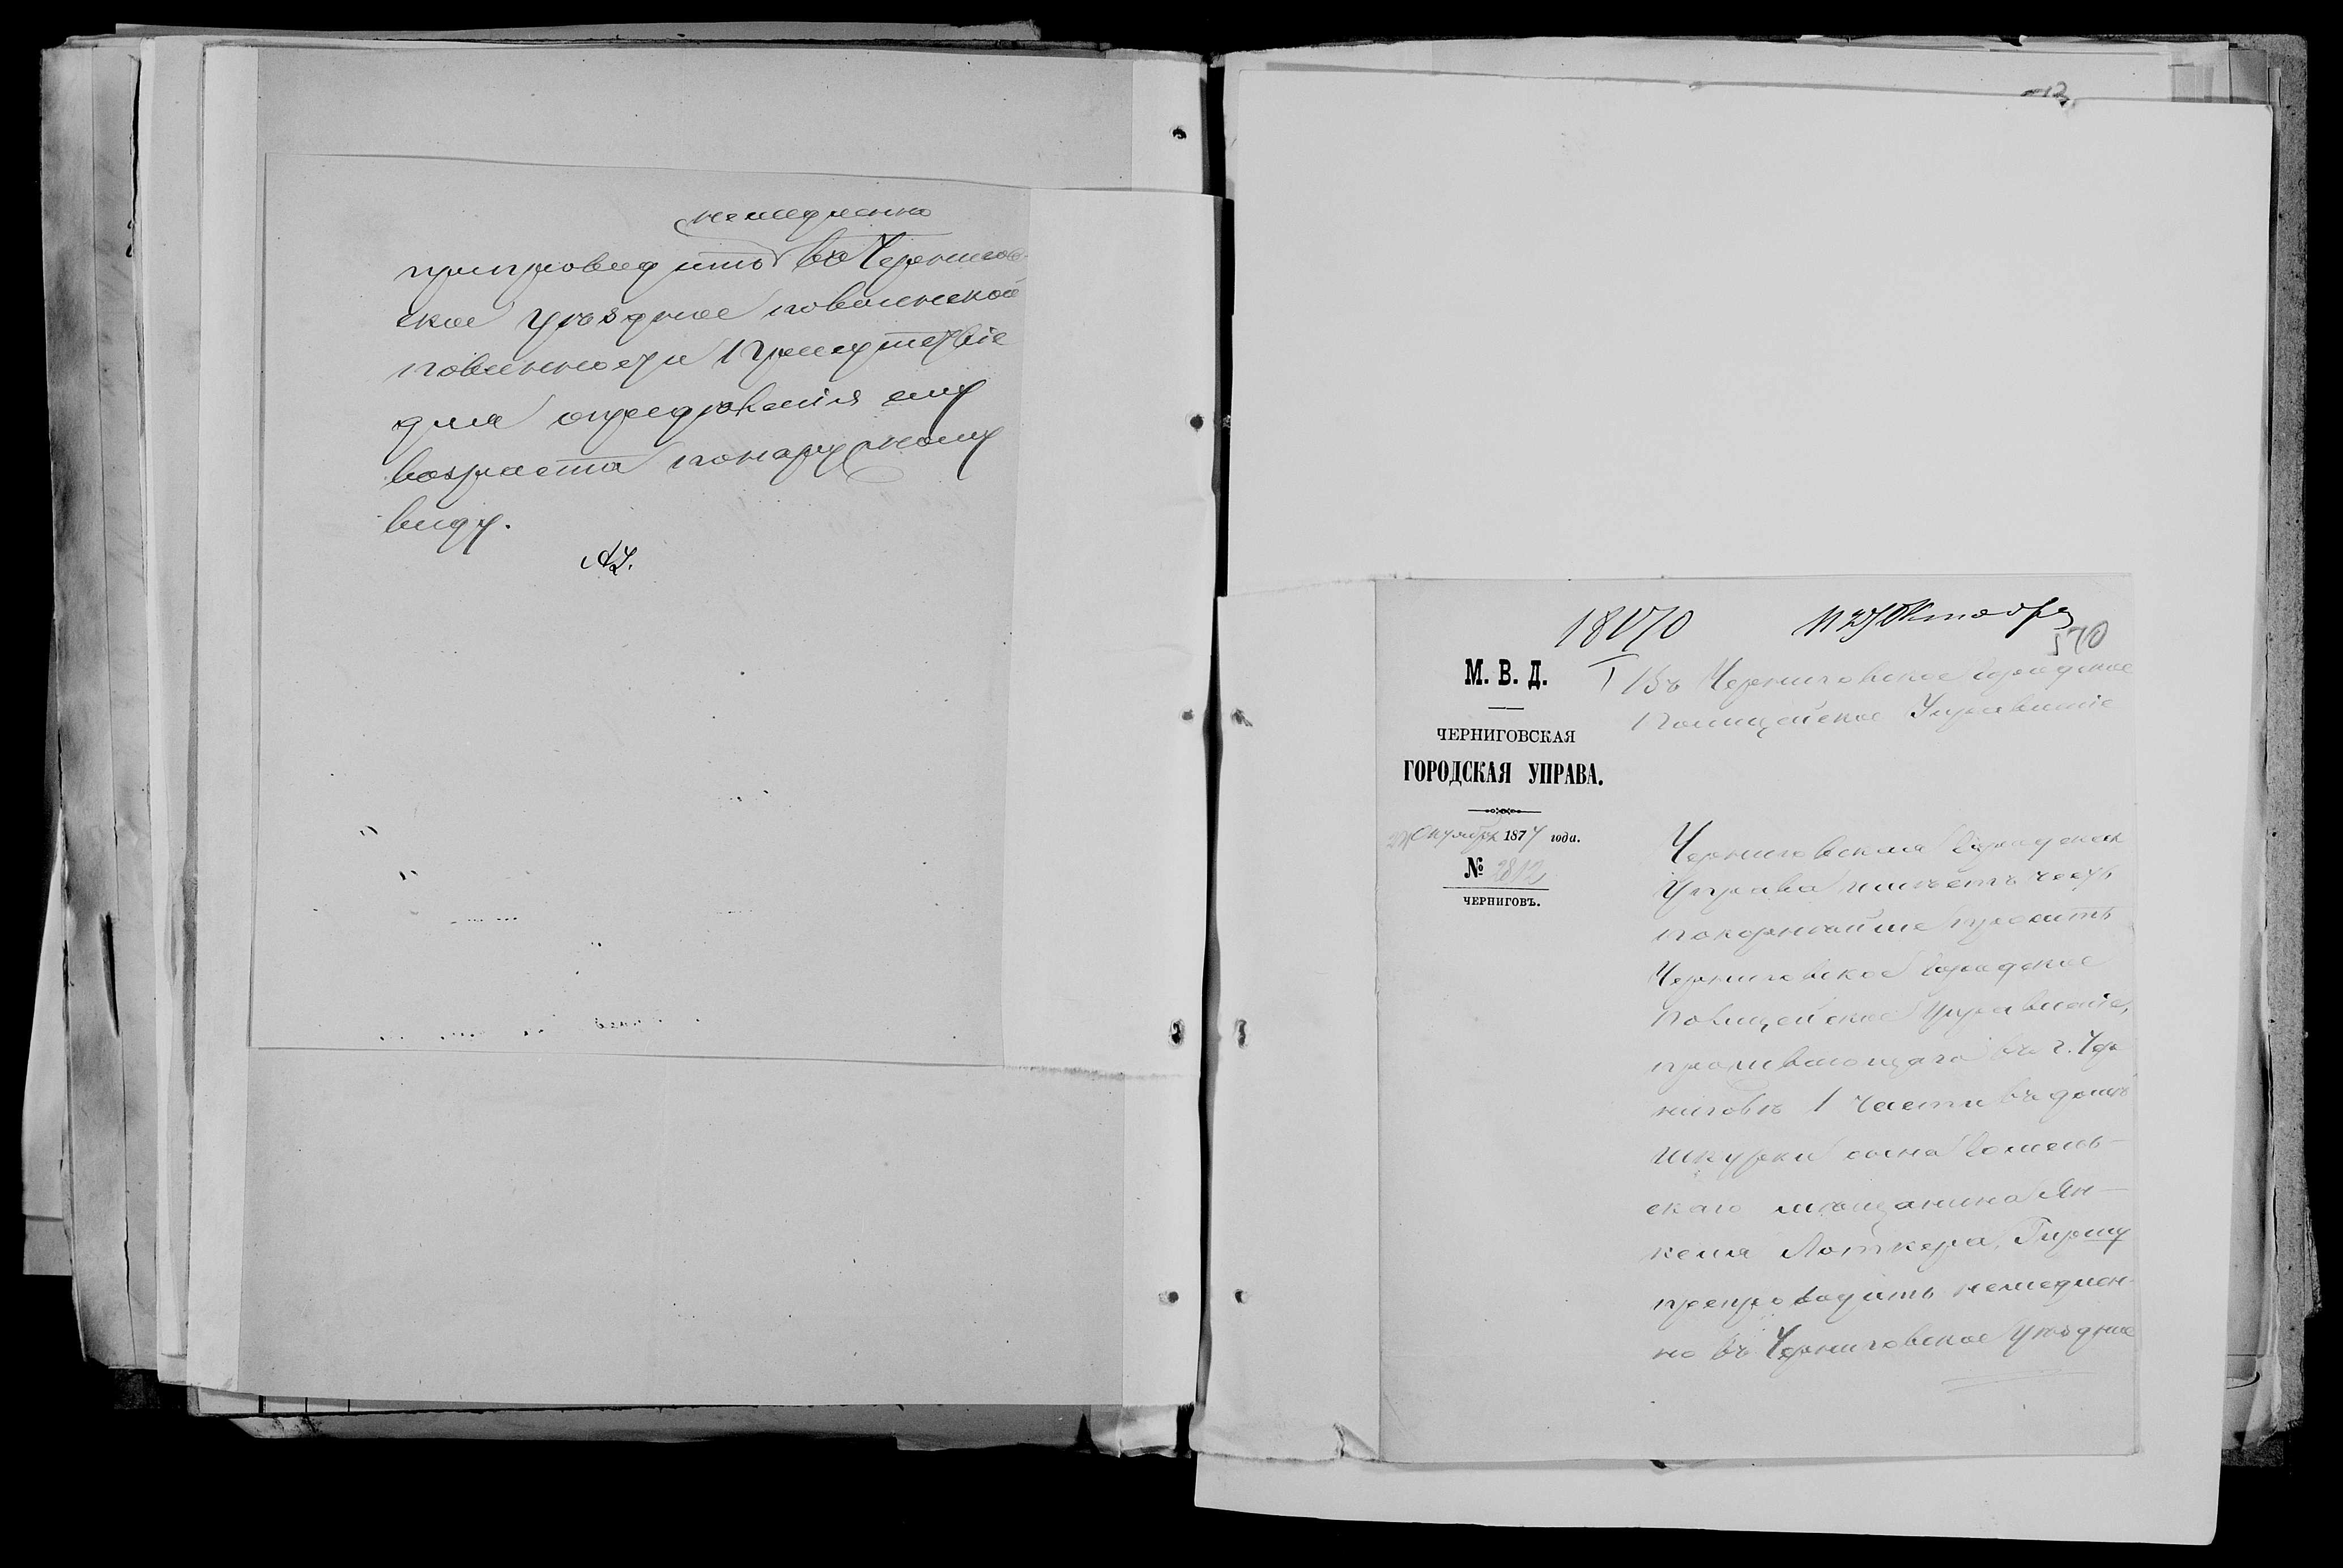 немедленно
припроводить въ Чернигов-
ское уѣздное по воинской
повинности Присутствіе
для определенія ему
возраста по наружному
виду.
18170
Октября
570
М. В. Д.
ЧЕРНИГОВСКАЯ
ГОРОДСКАЯ УПРАВА.
Октября 1874 года.
№ 2812
ЧЕРНИГОВЪ.
Въ Черниговское Городское
Полицейское Управленіе
Черниговская Городская
Управа имѣетъ честь
покорнѣйше просить
Черниговское Городское
Полицейское Управленіе,
проживающаго въ г. Чер
ниговѣ 1 части въ домѣ
Шкурки сына Гомель-
скаго мѣщанина Ян-
келя Лоткера, Гиршу
препроводить немедлен-
но въ Черниговское уѣздное